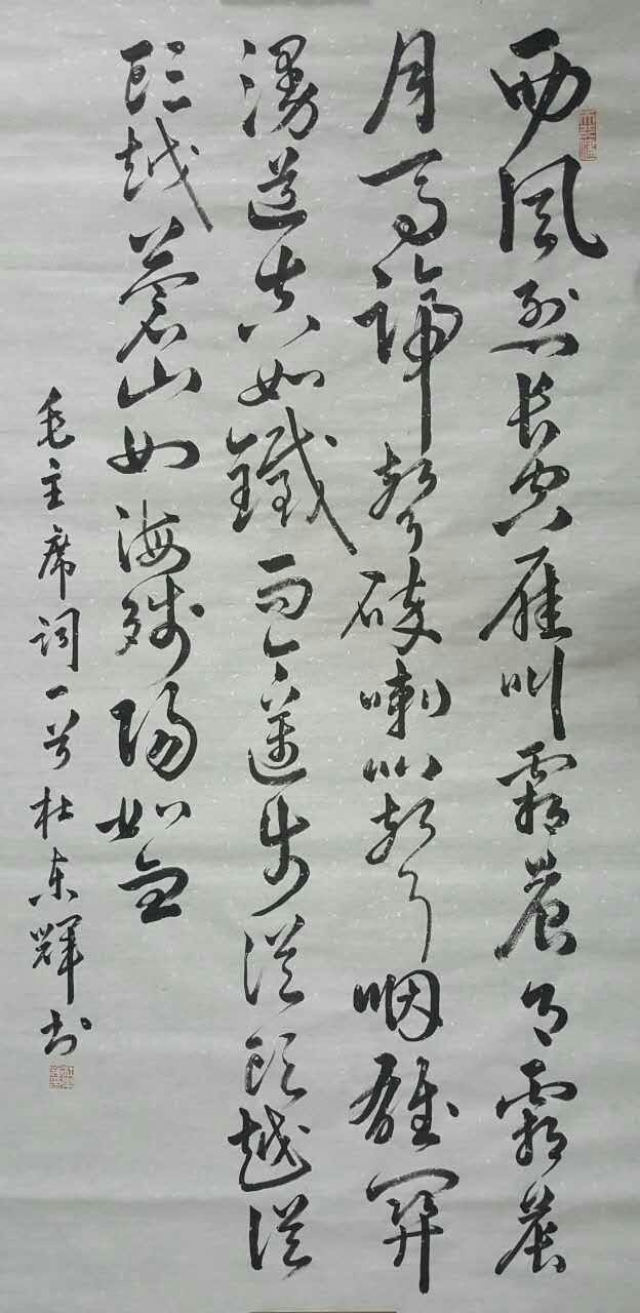 西風烈長空雁叫霜晨月霜晨
月馬蹄聲碎喇叭聲咽雄關
漫道真如鐵而今邁步從頭越從
頭越蒼山如海殘陽如血
毛主席词一首杜东輝书